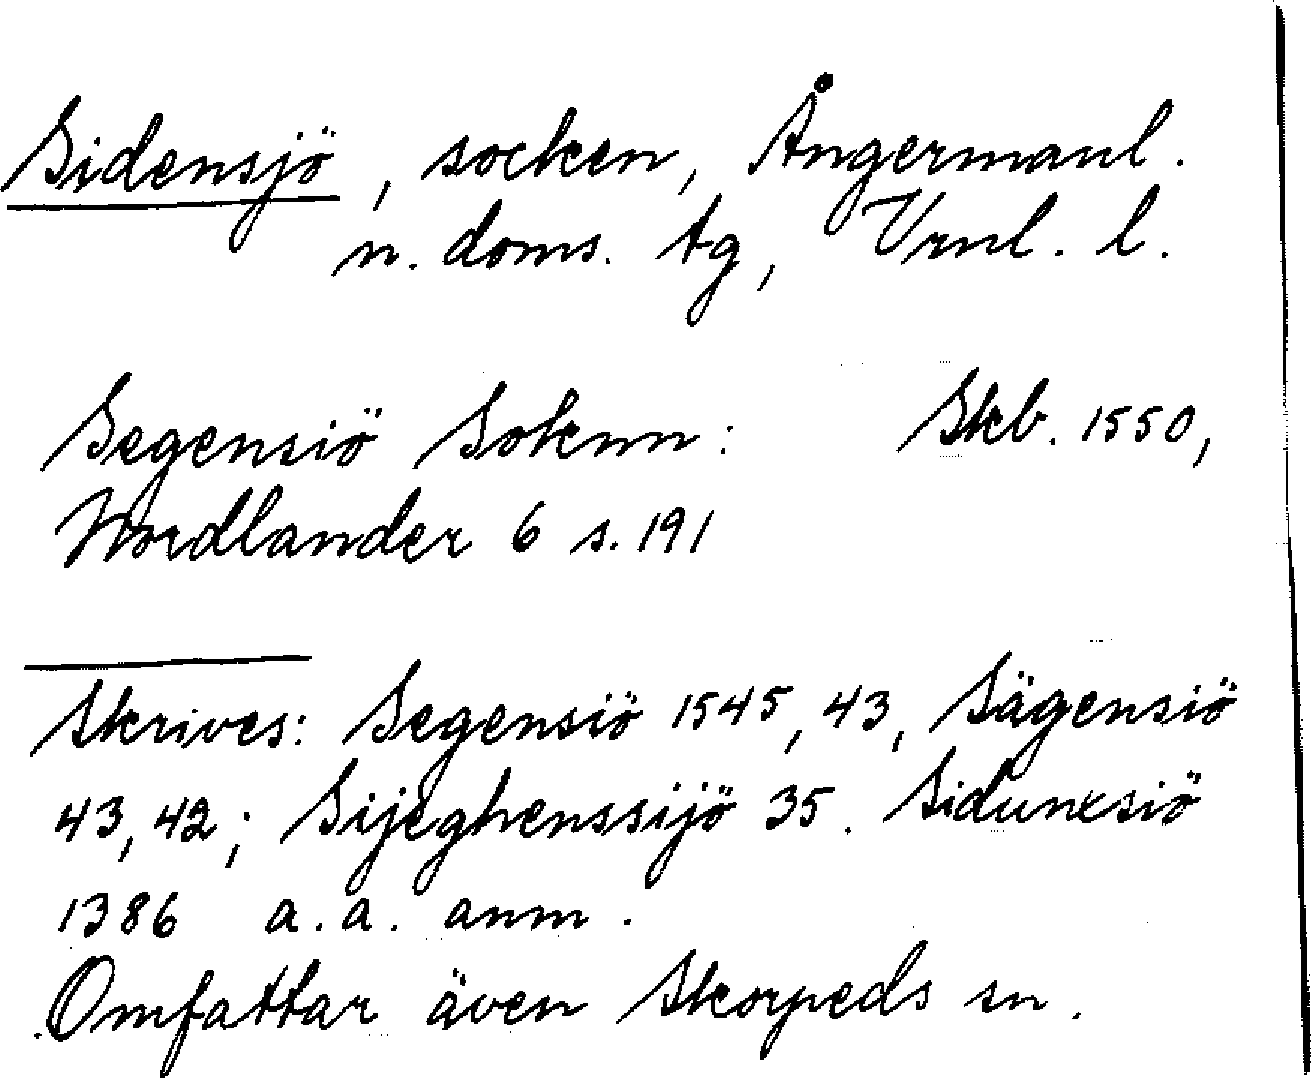 Sidensjö, socken, Ångermanl.
n. doms. tg, Vrnl. l.
Segensiö Soknn: Skb. 1550,
Nordlander 6 s. 191
Skrives: Segensiö 1545, 43, Sägensiö
43, 42; Sijeghenssijö 35. Sidunesiö
1386 a. a. anm.
Omfattar även Skorpeds sn.